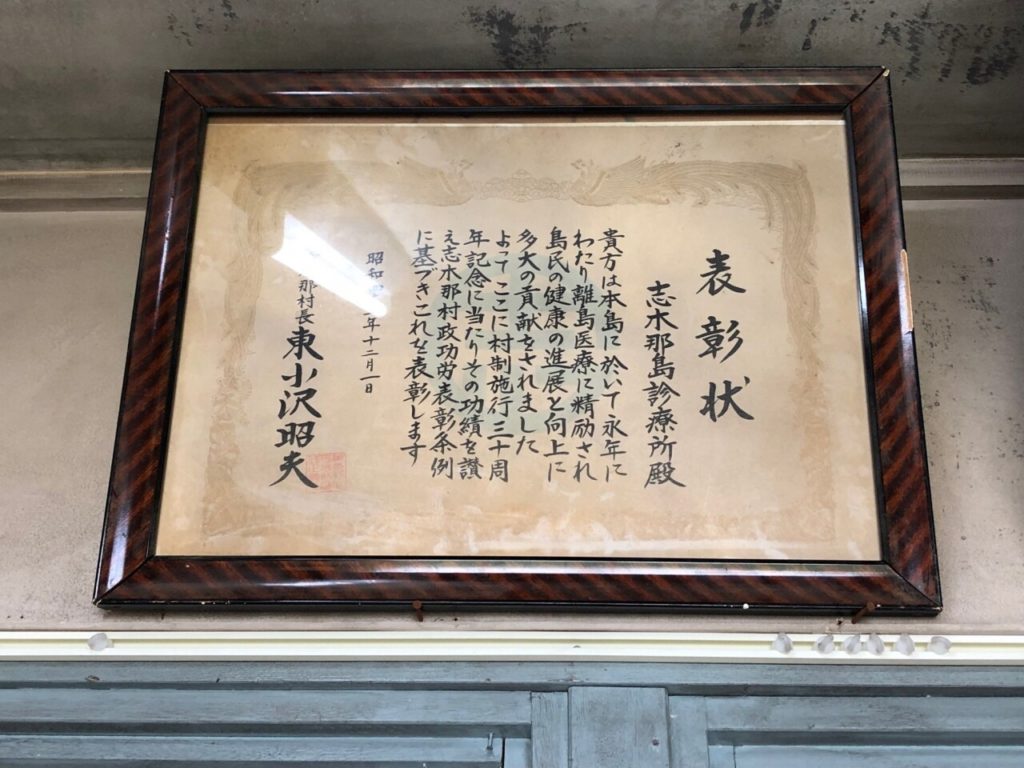 表彰状
志木那島診療所殿
貴方は本島に於いて永年に
わたり離島医療に精励され
島民の健康の進展と向上に
多大の貢献をされました
よってここに村制施行三十周
年記念に当たりその功績を讃
え志木那村政功労表彰条例
に基づきこれを表彰します
昭和 年十二月一日
那村長 東小沢昭夫